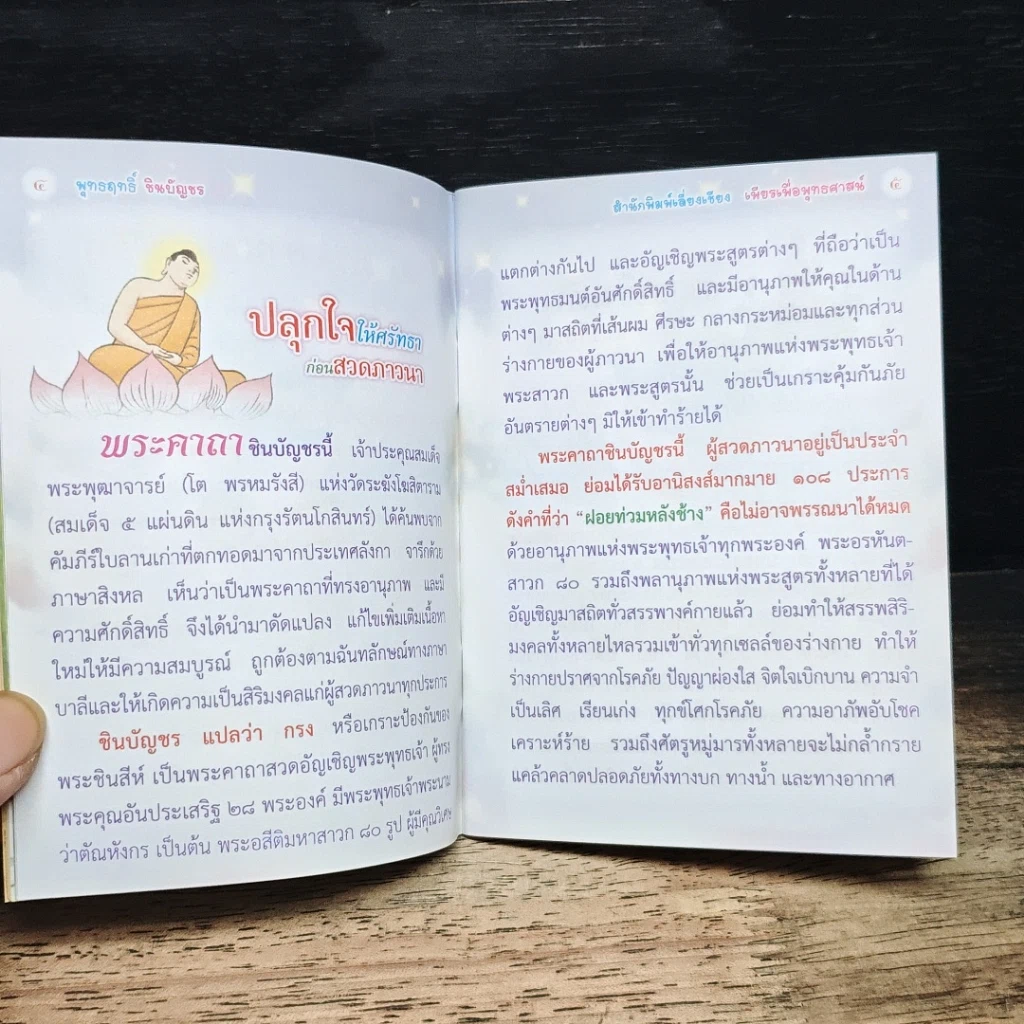 ๔ พุทธฤทธิ์ ชินบัญชร
ปลุกใจให้ศรัทธา
ก่อนสวดภาวนา
พระคาถาชินบัญชรนี้ เจ้าประคุณสมเด็จ
พระพุฒาจารย์ (โต พรหมรังสี) แห่งวัดระฆังโฆสิตาราม
(สมเด็จ ๕ แผ่นดิน แห่งกรุงรัตนโกสินทร์) ได้ค้นพบจาก
คัมภีร์ใบลานเก่าที่ตกทอดมาจากประเทศลังกา จารึกด้วย
ภาษาสิงหล เห็นว่าเป็นพระคาถาที่ทรงอานุภาพ และมี
ความศักดิ์สิทธิ์ จึงได้นำมาดัดแปลง แก้ไขเพิ่มเติมเนื้อหา
ใหม่ให้มีความสมบูรณ์ ถูกต้องตามฉันทลักษณ์ทางภาษา
บาลีและให้เกิดความเป็นสิริมงคลแก่ผู้สวดภาวนาทุกประการ
ชินบัญชร แปลว่า กรง หรือเกราะป้องกันของ
พระชินสีห์ เป็นพระคาถาสวดอัญเชิญพระพุทธเจ้า ผู้ทรง
พระคุณอันประเสริฐ ๒๘ พระองค์ มีพระพุทธเจ้าพระนาม
ว่าตัณหังกร เป็นต้น พระอสีติมหาสาวก ๘๐ รูป ผู้มีคุณวิเศษ
สำนักพิมพ์เลี่ยงเชียง เพียรเพื่อพุทธศาสน์ ๕
แตกต่างกันไป และอัญเชิญพระสูตรต่างๆ ที่ถือว่าเป็น
พระพุทธมนต์อันศักดิ์สิทธิ์ และมีอานุภาพให้คุณในด้าน
ต่างๆ มาสถิตที่เส้นผม ศีรษะ กลางกระหม่อมและทุกส่วน
ร่างกายของผู้ภาวนา เพื่อให้อานุภาพแห่งพระพุทธเจ้า
พระสาวก และพระสูตรนั้น ช่วยเป็นเกราะคุ้มกันภัย
อันตรายต่างๆ มิให้เข้าทำร้ายได้
พระคาถาชินบัญชรนี้ ผู้สวดภาวนาอยู่เป็นประจำ
สม่ำเสมอ ย่อมได้รับอานิสงส์มากมาย ๑๐๘ ประการ
ดังคำที่ว่า “ฝอยท่วมหลังช้าง” คือไม่อาจพรรณนาได้หมด
ด้วยอานุภาพแห่งพระพุทธเจ้าทุกพระองค์ พระอรหันต-
สาวก ๘๐ รวมถึงพลานุภาพแห่งพระสูตรทั้งหลายที่ได้
อัญเชิญมาสถิตทั่วสรรพางค์กายแล้ว ย่อมทำให้สรรพสิริ-
มงคลทั้งหลายไหลรวมเข้าทั่วทุกเซลล์ของร่างกาย ทำให้
ร่างกายปราศจากโรคภัย ปัญญาผ่องใส จิตใจเบิกบาน ความจำ
เป็นเลิศ เรียนเก่ง ทุกข์โศกโรคภัย ความอาภัพอับโชค
เคราะห์ร้าย รวมถึงศัตรูหมู่มารทั้งหลายจะไม่กล้ำกราย
แคล้วคลาดปลอดภัยทั้งทางบก ทางน้ำ และทางอากาศ